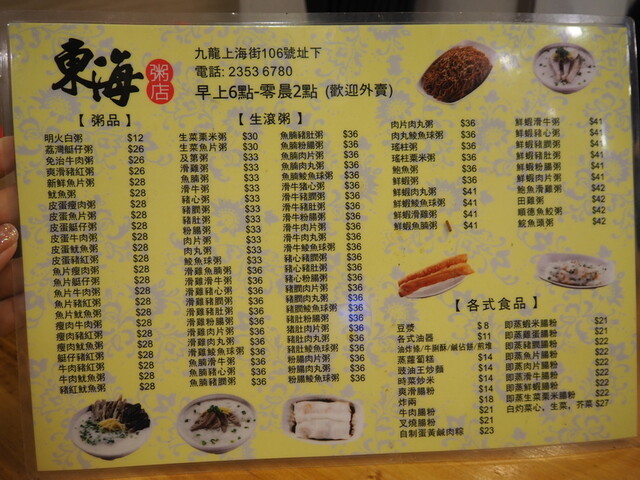 東海
粥店
九龍上海街106號址下
電話: 2353 6780
早上6點-零晨2點 (歡迎外賣)
【 粥品 】
明火白粥 $12
荔灣艇仔粥 $26
免治牛肉粥 $26
爽滑豬紅粥 $26
新鮮魚片粥 $28
魷魚粥 $28
皮蛋瘦肉粥 $28
皮蛋魚片粥 $28
皮蛋艇仔粥 $28
皮蛋牛肉粥 $28
皮蛋魷魚粥 $28
皮蛋豬紅粥 $28
魚片瘦肉粥 $28
魚片艇仔粥 $28
魚片牛肉粥 $28
魚片豬紅粥 $28
魚片魷魚粥 $28
瘦肉牛肉粥 $28
瘦肉豬紅粥 $28
瘦肉魷魚粥 $28
艇仔豬紅粥 $28
牛肉豬紅粥 $28
牛肉魷魚粥 $28
豬紅魷魚粥 $28
【 生滾粥 】
生菜粟米粥 $30
生菜魚片粥 $30
及第粥 $33
滑雞粥 $33
魚腩粥 $33
滑牛粥 $33
豬心粥 $33
豬膶粥 $33
豬肚粥 $33
粉腸粥 $33
肉片粥 $33
肉丸粥 $33
鯪魚球粥 $33
滑雞魚腩粥 $36
滑雞滑牛粥 $36
滑雞豬心粥 $36
滑雞豬膶粥 $36
滑雞豬肚粥 $36
滑雞粉腸粥 $36
滑雞肉片粥 $36
滑雞肉丸粥 $36
滑雞鯪魚球粥 $36
魚腩滑牛粥 $36
魚腩豬心粥 $36
魚腩豬膶粥 $36
魚腩豬肚粥 $36
魚腩粉腸粥 $36
魚腩肉片粥 $36
魚腩肉丸粥 $36
魚腩鯪魚球粥 $36
滑牛猪心粥 $36
滑牛豬膶粥 $36
滑牛豬肚粥 $36
滑牛粉腸粥 $36
滑牛肉片粥 $36
滑牛肉丸粥 $36
滑牛鯪魚球粥 $36
豬心豬膶粥 $36
豬心豬肚粥 $36
豬心粉腸粥 $36
豬膶肉片粥 $36
豬膶肉丸粥 $36
豬膶鯪魚球粥 $36
豬肚粉腸粥 $36
猪肚肉片粥 $36
豬肚肉丸粥 $36
豬肚鯪魚球粥 $36
粉腸肉片粥 $36
粉腸肉丸粥 $36
粉腸鯪魚球粥 $36
肉片肉丸粥 $36
肉丸鯪魚球粥 $36
瑤柱粥 $36
瑤柱粟米粥 $36
鮑魚粥 $36
鮮蝦粥 $36
鮮蝦肉丸粥 $41
鮮蝦鯪魚球粥 $41
鮮蝦滑雞粥 $41
鮮蝦魚腩粥 $41
鮮蝦滑牛粥 $41
鮮蝦豬心粥 $41
鮮蝦豬膶粥 $41
鮮蝦豬肚粥 $41
鮮蝦粉腸粥 $41
鮮蝦肉片粥 $41
鮑魚滑雞粥 $42
田雞粥 $42
順德魚鮫粥 $42
鯇魚頭粥 $42
【 各式食品 】
豆漿 $ 8
各式油器 $11
油炸條/牛脷酥/鹹佔餅/煎堆
蒸蘿蔔糕 $14
豉油王炒麵 $14
時菜炒米 $14
爽滑腸粉 $14
炸兩 $18
牛肉腸粉 $21
叉燒腸粉 $21
自制蛋黃鹹肉粽 $23
即蒸蝦米腸粉 $21
即蒸雞蛋腸粉 $21
即蒸豬膶腸粉 $22
即蒸魚片腸粉 $22
即蒸肉片腸粉 $22
即蒸滑牛腸粉 $22
即蒸鮮蝦腸粉 $22
即蒸生菜粟米腸粉 $22
白灼菜心，生菜，芥菜 $27